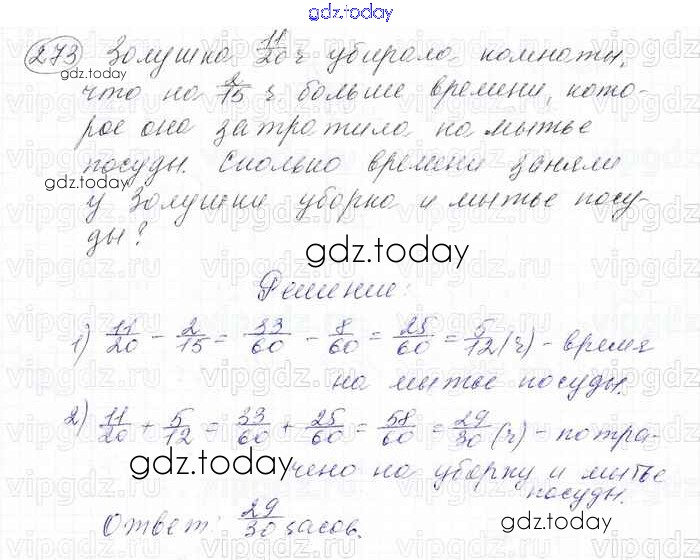 gdz.today
273 Золушка 11/20 ч убирала комнаты,
что на 2/15 ч больше времени, кото-
gdz.today
рое она затратила на мытье
посуды. Сколько времени заняли
gdz.today
у Золушки уборка и мытье посу-
ды?
gdz.today
Решение:
1) 11/20 - 2/15 = 33/60 - 8/60 = 25/60 = 5/12 (ч) - время
на мытье посуды.
2) 11/20 + 5/12 = 33/60 + 25/60 = 58/60 = 29/30 (ч) - потра-
gdz.today
чено на уборку и мытье
посуды.
Ответ: 29/30 часов.
gdz.today